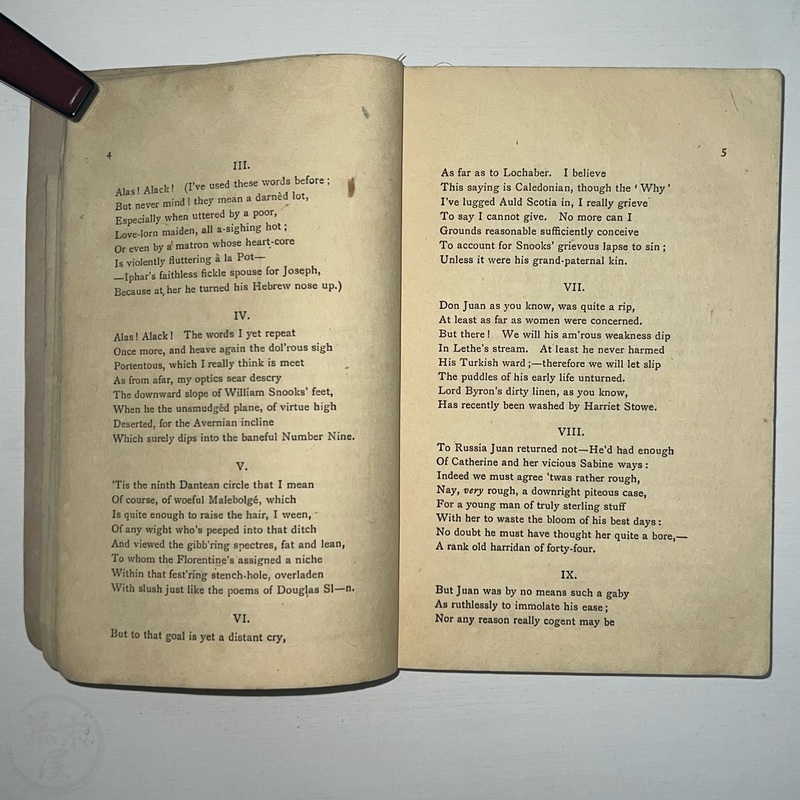 4
III.
Alas! Alack! (I've used these words before;
But never mind! they mean a darnèd lot,
Especially when uttered by a poor,
Love-lorn maiden, all a-sighing hot;
Or even by a matron whose heart-core
Is violently fluttering à la Pot—
—Iphar's faithless fickle spouse for Joseph,
Because at her he turned his Hebrew nose up.)
IV.
Alas! Alack! The words I yet repeat
Once more, and heave again the dol'rous sigh
Portentous, which I really think is meet
As from afar, my optics sear descry
The downward slope of William Snooks' feet,
When he the unsmudgèd plane, of virtue high
Deserted, for the Avernian incline
Which surely dips into the baneful Number Nine.
V.
'Tis the ninth Dantean circle that I mean
Of course, of woeful Malebolgé, which
Is quite enough to raise the hair, I ween,
Of any wight who's peeped into that ditch
And viewed the gibb'ring spectres, fat and lean,
To whom the Florentine's assigned a niche
Within that fest'ring stench-hole, overladen
With slush just like the poems of Douglas Sl—n.
VI.
But to that goal is yet a distant cry,
5
As far as to Lochaber. I believe
This saying is Caledonian, though the 'Why'
I've lugged Auld Scotia in, I really grieve
To say I cannot give. No more can I
Grounds reasonable sufficiently conceive
To account for Snooks' grievous lapse to sin;
Unless it were his grand-paternal kin.
VII.
Don Juan as you know, was quite a rip,
At least as far as women were concerned.
But there! We will his am'rous weakness dip
In Lethe's stream. At least he never harmed
His Turkish ward;—therefore we will let slip
The puddles of his early life unturned.
Lord Byron's dirty linen, as you know,
Has recently been washed by Harriet Stowe.
VIII.
To Russia Juan returned not—He'd had enough
Of Catherine and her vicious Sabine ways:
Indeed we must agree 'twas rather rough,
Nay, very rough, a downright piteous case,
For a young man of truly sterling stuff
With her to waste the bloom of his best days:
No doubt he must have thought her quite a bore,—
A rank old harridan of forty-four.
IX.
But Juan was by no means such a gaby
As ruthlessly to immolate his ease;
Nor any reason really cogent may be